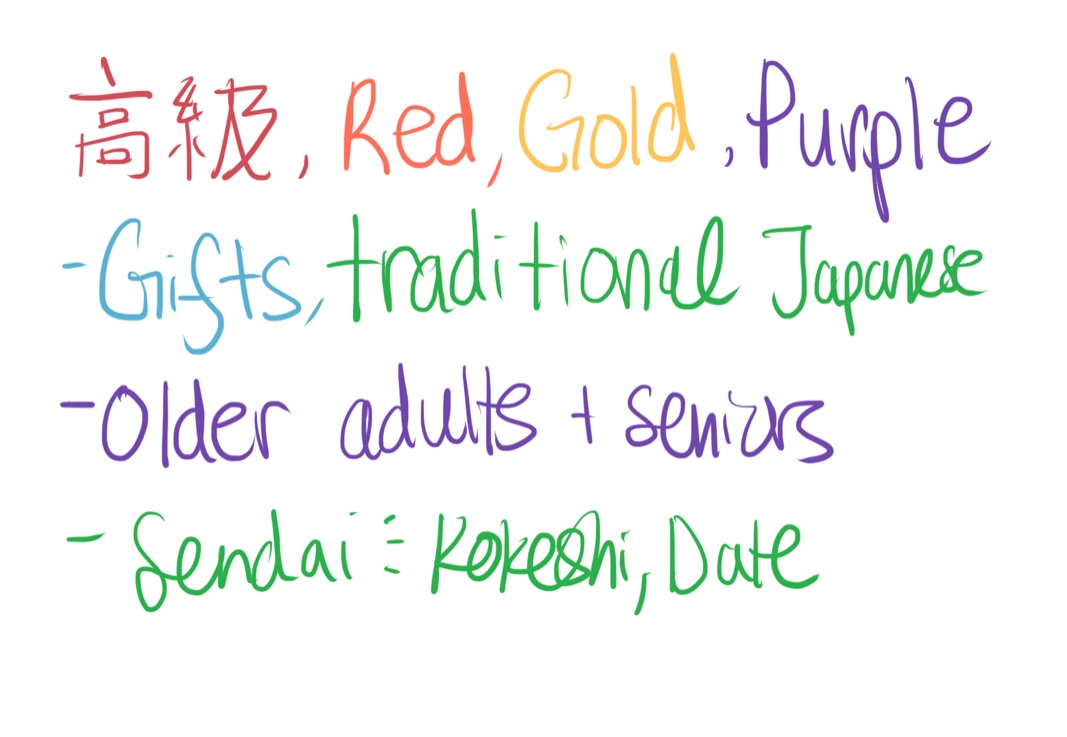 高級, Red, Gold, Purple
-Gifts, traditional Japanese
-Older adults + seniors
- Sendai: Kokeshi, Date